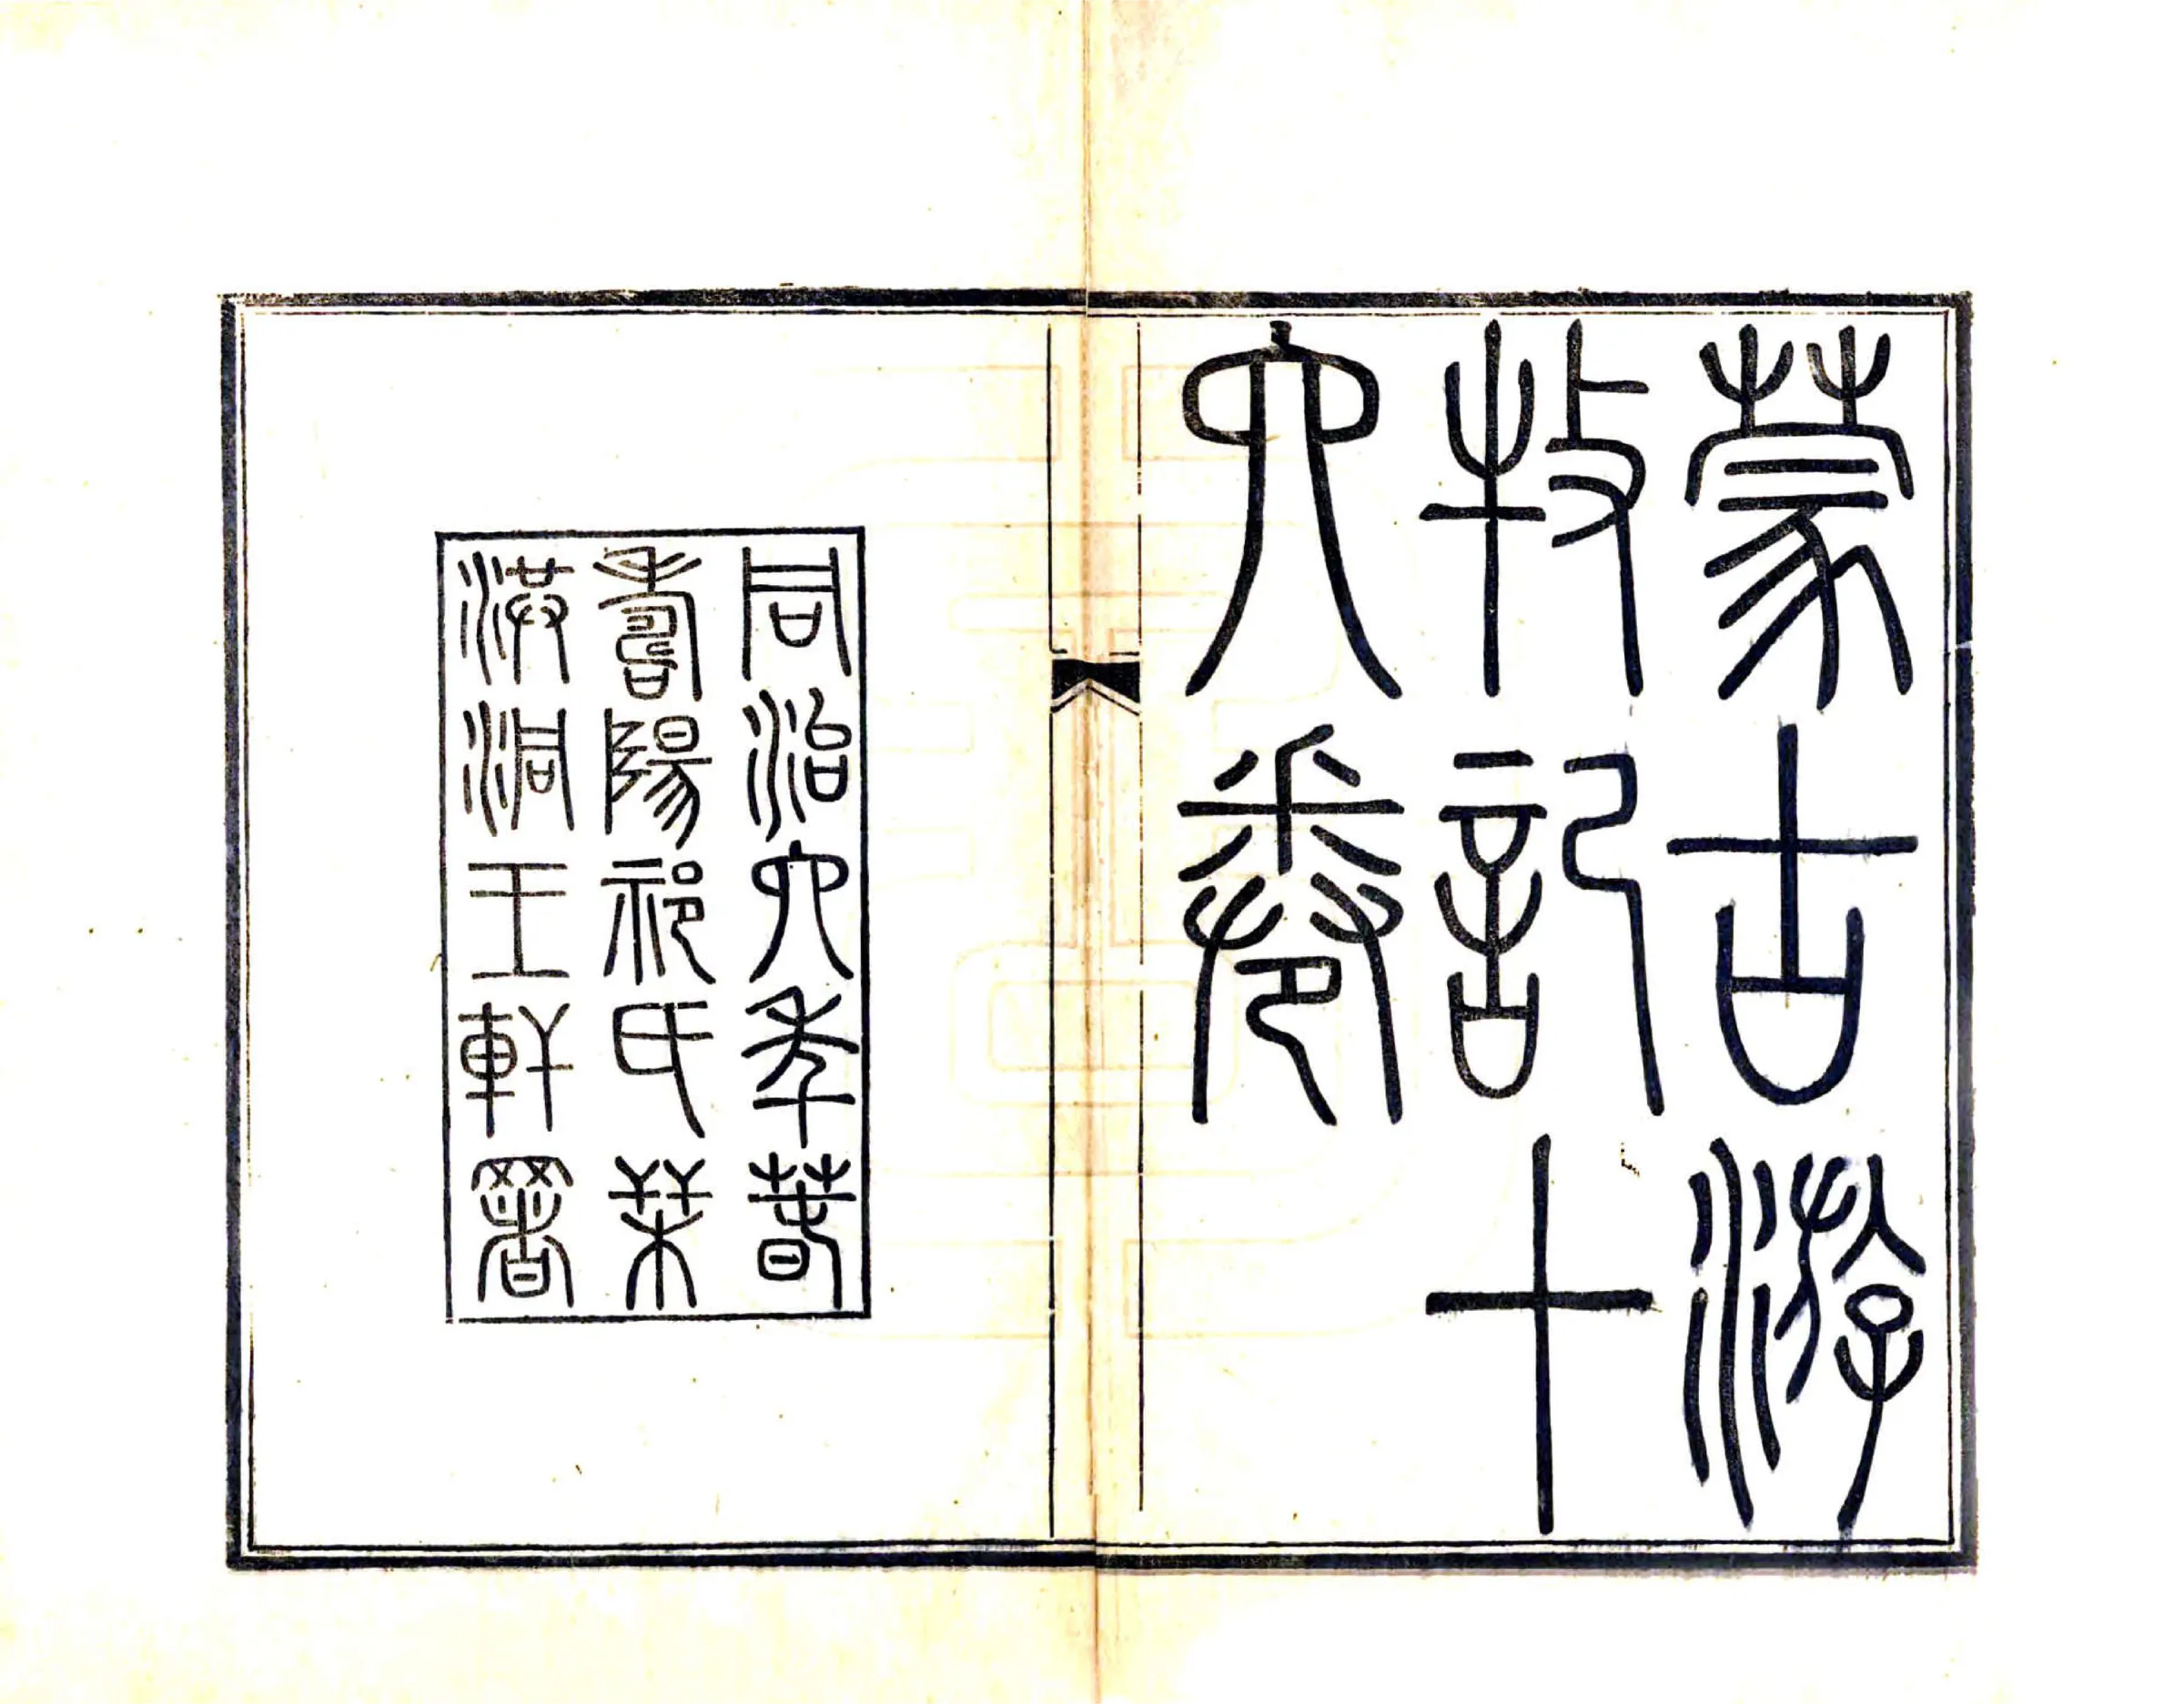 蒙古游
牧記十
六卷
同治六年春
壽陽祁氏栞
洪洞王軒署